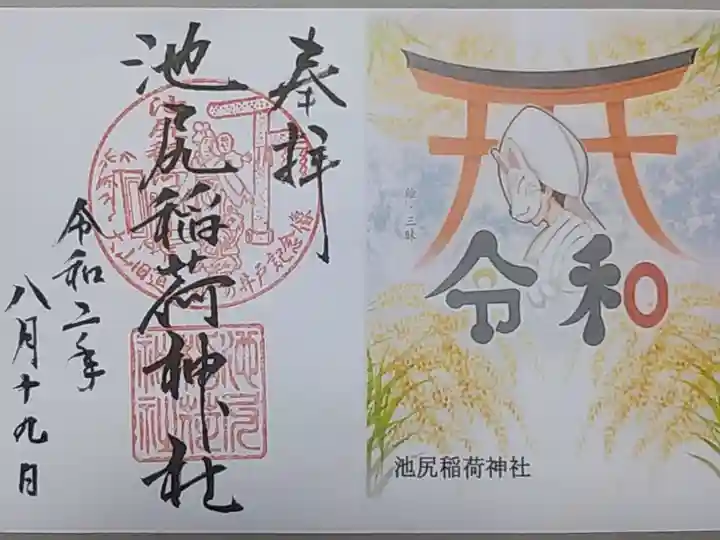 奉拝
池尻稲荷神社
令和二年
八月十九日
大山旧道
絵・三昧
令和
池尻稲荷神社